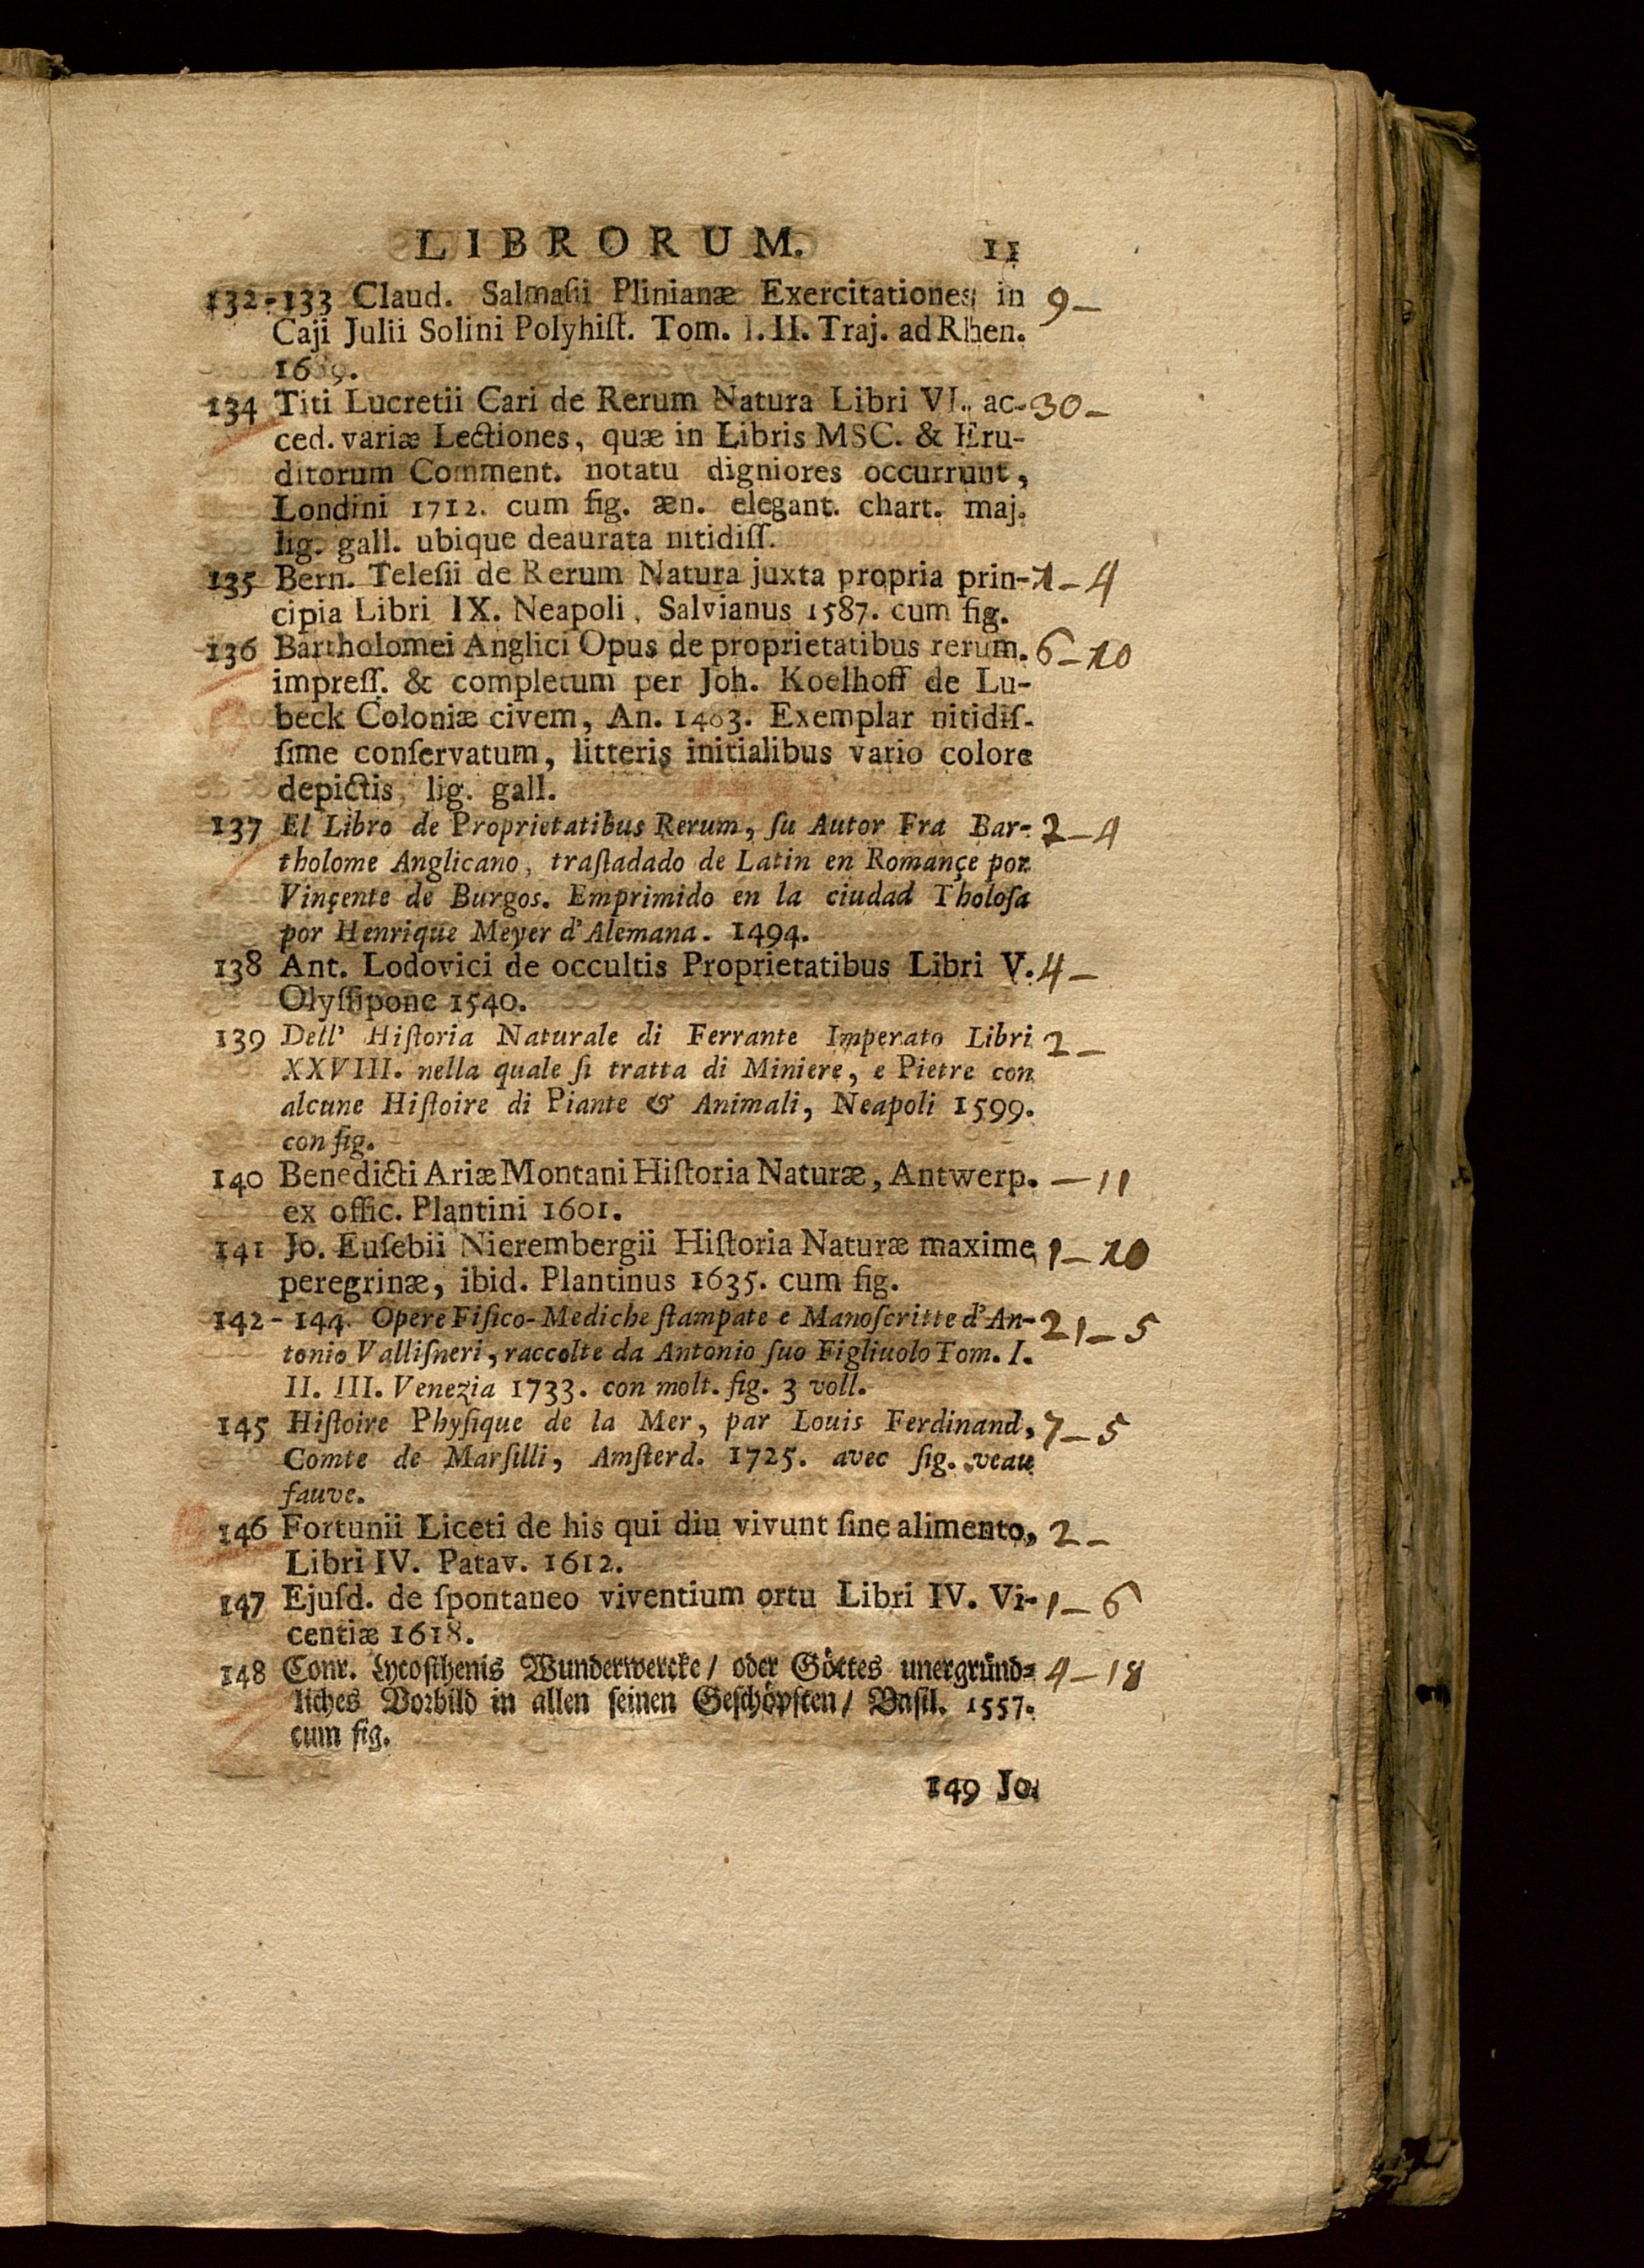 LIBRORUM. 11
132-133 Claud. Salmasii Plinianæ Exercitationes in 9-
Caji Julii Solini Polyhist. Tom. I. II. Traj. ad Rhen.
1689.
134 Titi Lucretii Cari de Rerum Natura Libri VI., ac- 30-
ced. variæ Lectiones, quæ in Libris MSC. & Eru-
ditorum Comment. notatu digniores occurrunt,
Londini 1712. cum fig. æn. elegant. chart. maj.
lig. gall. ubique deaurata nitidiss.
135 Bern. Telesii de Rerum Natura juxta propria prin- 1-4
cipia Libri IX. Neapoli, Salvianus 1587. cum fig.
136 Bartholomei Anglici Opus de proprietatibus rerum. 6-10
impress. & completum per Joh. Koelhoff de Lu-
beck Coloniæ civem, An. 1483. Exemplar nitidis-
sime conservatum, litteris initialibus vario colore
depictis, lig. gall.
137 El Libro de Proprietatibus Rerum, su Autor Fra Bar- 2-4
tholome Anglicano, trastadado de Latin en Romançe por
Vinçente de Burgos. Emprimido en la ciudad Tholosa
por Henrique Meyer d'Alemana. 1494.
138 Ant. Lodovici de occultis Proprietatibus Libri V. 4-
Olyssipone 1540.
139 Dell' Historia Naturale di Ferrante Imperato Libri 2-
XXVIII. nella quale si tratta di Miniere, e Pietre con
alcune Histoire di Piante & Animali, Neapoli 1599.
con fig.
140 Benedicti Ariæ Montani Historia Naturæ, Antwerp. -11
ex offic. Plantini 1601.
141 Jo. Eusebii Nierembergii Historia Naturæ maxime 1-10
peregrinæ, ibid. Plantinus 1635. cum fig.
142-144. Opere Fisico-Mediche stampate e Manoscritte d'An- 21-5
tonio Vallisneri, raccolte da Antonio suo Figliuolo Tom. I.
II. III. Venezia 1733. con molt. fig. 3 voll.
145 Histoire Physique de la Mer, par Louis Ferdinand, 7-5
Comte de Marsilli, Amsterd. 1725. avec fig. veau
fauve.
146 Fortunii Liceti de his qui diu vivunt sine alimento, 2-
Libri IV. Patav. 1612.
147 Ejusd. de spontaneo viventium ortu Libri IV. Vi- 1-6
centiæ 1618.
148 Conr. Lycosthenis Wunderwercke / oder Gottes unergründ- 4-18
liches Vorbild in allen seinen Geschöpffen / Basil. 1557.
cum fig.
149 Jo.